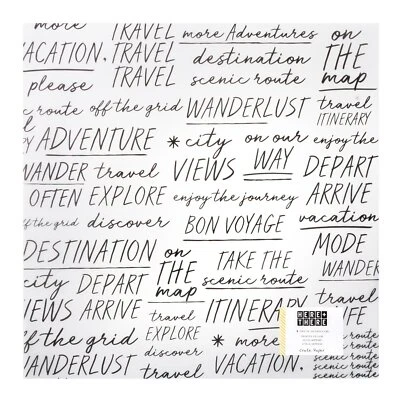 more TRAVEL more Adventures on
VACATION, TRAVEL destination THE
please TRAVEL scenic route map
route off the grid WANDERLUST travel
ITINERARY
ADVENTURE * city on our enjoy the
WANDER travel VIEWS WAY DEPART
OFTEN EXPLORE enjoy the journey ARRIVE
off the grid discover BON VOYAGE vacation
DESTINATION on TAKE THE MODE
city DEPART THE scenic route WANDER
VIEWS ARRIVE map ITINERARY travel
off the grid travel LIFE
EXPLORE * more
WANDERLUST discover VACATION
HERE +
THERE
scenic route
scenic route
scenic route